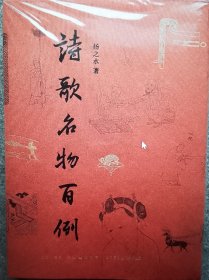 詩歌名物百例
扬之水 著